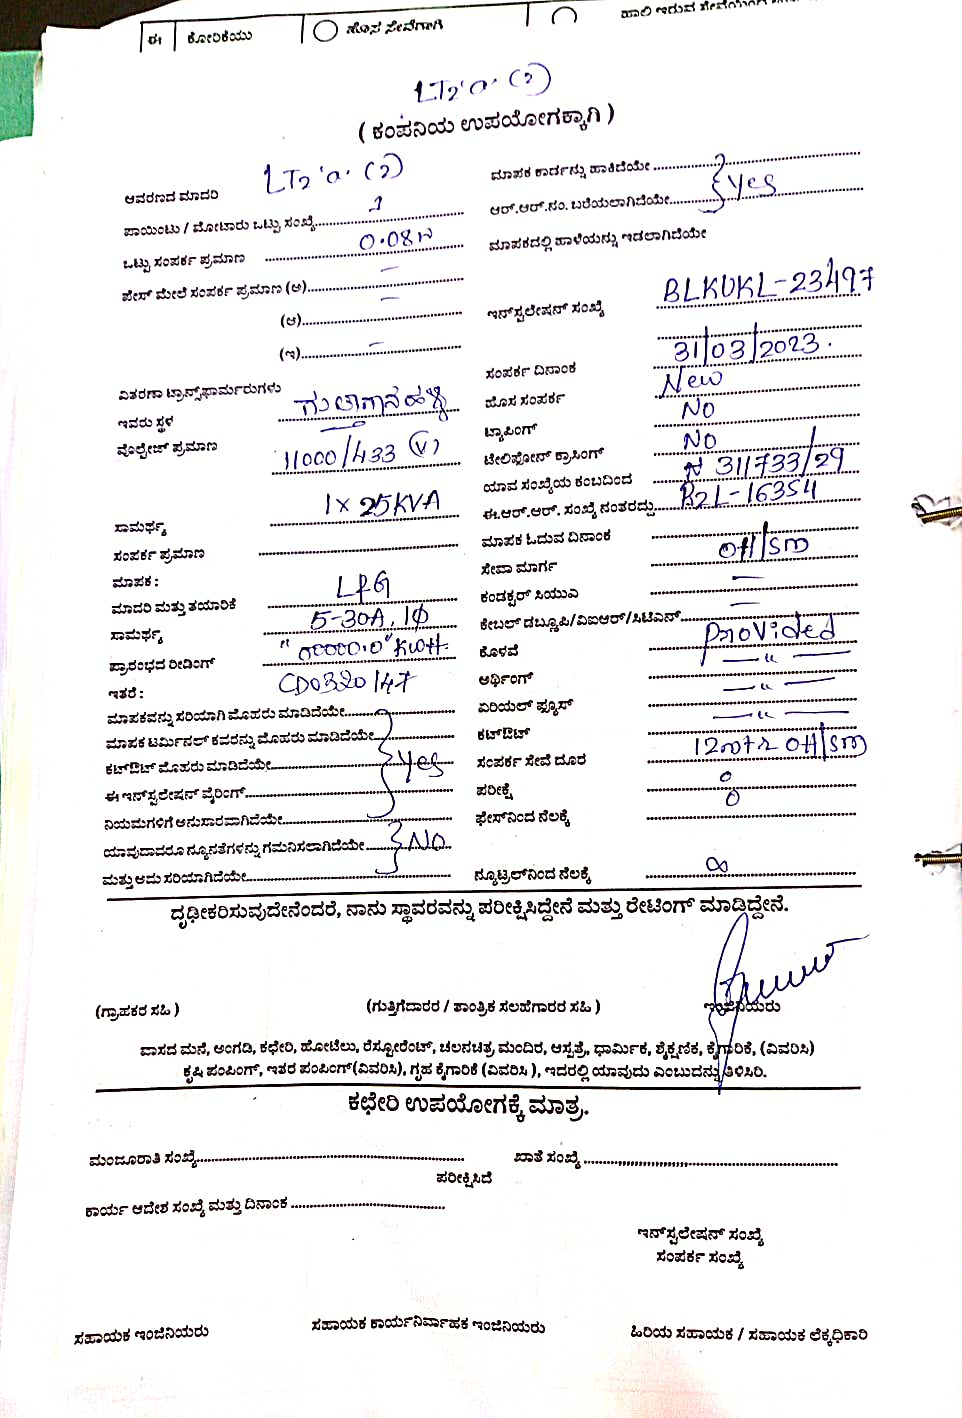 ಈ ಕೋರಿಕೆಯು ಹೊಸ ಸೇವೆಗಾಗಿ ಹಾಲಿ ಇರುವ
LT2 'a' (2)
( ಕಂಪನಿಯ ಉಪಯೋಗಕ್ಕಾಗಿ )
ಆವರಣದ ಮಾದರಿ LT2 'a' (2) ಮಾಪಕ ಕಾರ್ಡನ್ನು ಹಾಕಿದೆಯೇ
ಪಾಯಿಂಟು / ಮೋಟಾರು ಒಟ್ಟು ಸಂಖ್ಯೆ 1 ಆರ್.ಆರ್.ನಂ. ಬರೆಯಲಾಗಿದೆಯೇ Yes
ಒಟ್ಟು ಸಂಪರ್ಕ ಪ್ರಮಾಣ 0.08 ಮಾಪಕದಲ್ಲಿ ಹಾಳೆಯನ್ನು ಇಡಲಾಗಿದೆಯೇ
ಫೇಸ್ ಮೇಲೆ ಸಂಪರ್ಕ ಪ್ರಮಾಣ (ಅ) —
(ಆ) — ಇನ್‌ಸ್ಟಲೇಷನ್ ಸಂಖ್ಯೆ BLKUKL-23497
(ಇ) — ಸಂಪರ್ಕ ದಿನಾಂಕ 31/03/2023.
ವಿತರಣಾ ಟ್ರಾನ್ಸ್‌ಫಾರ್ಮರುಗಳು ಹೊಸ ಸಂಪರ್ಕ New
ಇವರು ಸ್ಥಳ ಟ್ಯಾಪಿಂಗ್ NO
ವೊಲ್ಟೇಜ್ ಪ್ರಮಾಣ 11000/433 (V) ಟೇಲಿಫೋನ್ ಕ್ರಾಸಿಂಗ್ NO
ಯಾವ ಸಂಖ್ಯೆಯ ಕಂಬದಿಂದ 311733/29
ಸಾಮರ್ಥ್ಯ 1 x 25KVA ಈ.ಆರ್.ಆರ್. ಸಂಖ್ಯೆ ನಂತರದ್ದು B2L-16354
ಸಂಪರ್ಕ ಪ್ರಮಾಣ ಮಾಪಕ ಓದುವ ದಿನಾಂಕ
ಮಾಪಕ : ಸೇವಾ ಮಾರ್ಗ OH/SM
ಮಾದರಿ ಮತ್ತು ತಯಾರಿಕೆ L&G ಕಂಡಕ್ಟರ್ ಸಿಯುವಿ —
ಸಾಮರ್ಥ್ಯ 5-30A, 1Φ ಕೇಬಲ್ ಡಬ್ಲೂಪಿ/ವಿಐಆರ್/ಸಿಟಿಎನ್ —
ಪ್ರಾರಂಭದ ರೀಡಿಂಗ್ "00000.0" KWH. ಕೊಳವೆ Provided
ಇತರೆ : CD0320147 ಅರ್ಥಿಂಗ್ — " —
ಮಾಪಕವನ್ನು ಸರಿಯಾಗಿ ಮೊಹರು ಮಾಡಿದೆಯೇ ಏರಿಯಲ್ ಫ್ಯೂಸ್ — " —
ಮಾಪಕ ಟರ್ಮಿನಲ್ ಕವರನ್ನು ಮೊಹರು ಮಾಡಿದೆಯೇ ಕಟ್‌ಔಟ್ — " —
ಕಟ್‌ಔಟ್ ಮೊಹರು ಮಾಡಿದೆಯೇ Yes ಸಂಪರ್ಕ ಸೇವೆ ದೂರ OH/SM
ಈ ಇನ್‌ಸ್ಟಲೇಷನ್ ವೈರಿಂಗ್ ಪರೀಕ್ಷೆ 0
ನಿಯಮಗಳಿಗೆ ಅನುಸಾರವಾಗಿದೆಯೇ ಫೇಸ್‌ನಿಂದ ನೆಲಕ್ಕೆ 0
ಯಾವುದಾದರೂ ನ್ಯೂನತೆಗಳನ್ನು ಗಮನಿಸಲಾಗಿದೆಯೇ NO
ಮತ್ತು ಅದು ಸರಿಯಾಗಿದೆಯೇ ನ್ಯೂಟ್ರಲ್‌ನಿಂದ ನೆಲಕ್ಕೆ ∞
ದೃಢೀಕರಿಸುವುದೇನೆಂದರೆ, ನಾನು ಸ್ಥಾವರವನ್ನು ಪರೀಕ್ಷಿಸಿದ್ದೇನೆ ಮತ್ತು ರೇಟಿಂಗ್ ಮಾಡಿದ್ದೇನೆ.
(ಗ್ರಾಹಕರ ಸಹಿ ) (ಗುತ್ತಿಗೆದಾರರ / ತಾಂತ್ರಿಕ ಸಲಹೆಗಾರರ ಸಹಿ ) ಇಂಜಿನಿಯರು
ವಾಸದ ಮನೆ, ಅಂಗಡಿ, ಕಛೇರಿ, ಹೋಟೆಲು, ರೆಸ್ಟೋರೆಂಟ್, ಚಲನಚಿತ್ರ ಮಂದಿರ, ಆಸ್ಪತ್ರೆ, ಧಾರ್ಮಿಕ, ಶೈಕ್ಷಣಿಕ, ಕೈಗಾರಿಕೆ, (ವಿವರಿಸಿ)
ಕೃಷಿ ಪಂಪಿಂಗ್, ಇತರ ಪಂಪಿಂಗ್(ವಿವರಿಸಿ), ಗೃಹ ಕೈಗಾರಿಕೆ (ವಿವರಿಸಿ ), ಇದರಲ್ಲಿ ಯಾವುದು ಎಂಬುದನ್ನು ತಿಳಿಸಿರಿ.
ಕಛೇರಿ ಉಪಯೋಗಕ್ಕೆ ಮಾತ್ರ.
ಮಂಜೂರಾತಿ ಸಂಖ್ಯೆ ಖಾತೆ ಸಂಖ್ಯೆ
ಪರೀಕ್ಷಿಸಿದೆ
ಕಾರ್ಯ ಆದೇಶ ಸಂಖ್ಯೆ ಮತ್ತು ದಿನಾಂಕ
ಇನ್‌ಸ್ಟಲೇಷನ್ ಸಂಖ್ಯೆ
ಸಂಪರ್ಕ ಸಂಖ್ಯೆ
ಸಹಾಯಕ ಇಂಜಿನಿಯರು ಸಹಾಯಕ ಕಾರ್ಯನಿರ್ವಾಹಕ ಇಂಜಿನಿಯರು ಹಿರಿಯ ಸಹಾಯಕ / ಸಹಾಯಕ ಲೆಕ್ಕಧಿಕಾರಿ